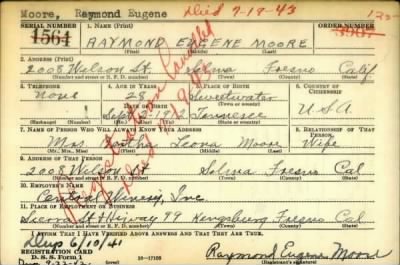 Moore, Raymond Eugene Died 7-19-43
SERIAL NUMBER 1. NAME (Print) ORDER NUMBER
1564 RAYMOND EUGENE MOORE 3907
(First) (Middle) (Last)
2. ADDRESS (Print)
2008 Wilson St. Selma Fresno Calif
(Number and street or R. F. D. number) (Town) (County) (State)
3. TELEPHONE 4. AGE IN YEARS 5. PLACE OF BIRTH 6. COUNTRY OF CITIZENSHIP
None 28 Sweetwater
DATE OF BIRTH (Town or county)
Sept 1912 Tennessee U S A
(Exchange) (Number) (Mo.) (Day) (Yr.) (State or country)
7. NAME OF PERSON WHO WILL ALWAYS KNOW YOUR ADDRESS 8. RELATIONSHIP OF THAT PERSON
Mrs Leona Moore Wife
(Mr., Mrs., Miss) (First) (Middle) (Last)
9. ADDRESS OF THAT PERSON
2008 Wilson St Selma Fresno Cal
(Number and street or R. F. D. number) (Town) (County) (State)
10. EMPLOYER'S NAME
Central Winery, Inc
11. PLACE OF EMPLOYMENT OR BUSINESS
Sierra St Hiway 99 Kingsburg Fresno Cal
(Number and street or R. F. D. number) (Town) (County) (State)
I AFFIRM THAT I HAVE VERIFIED ABOVE ANSWERS AND THAT THEY ARE TRUE.
Dup 6/10/41
REGISTRATION CARD
D. S. S. Form 1 16—17105 Raymond Eugene Moore
(Registrant's signature)
Registration Cancelled